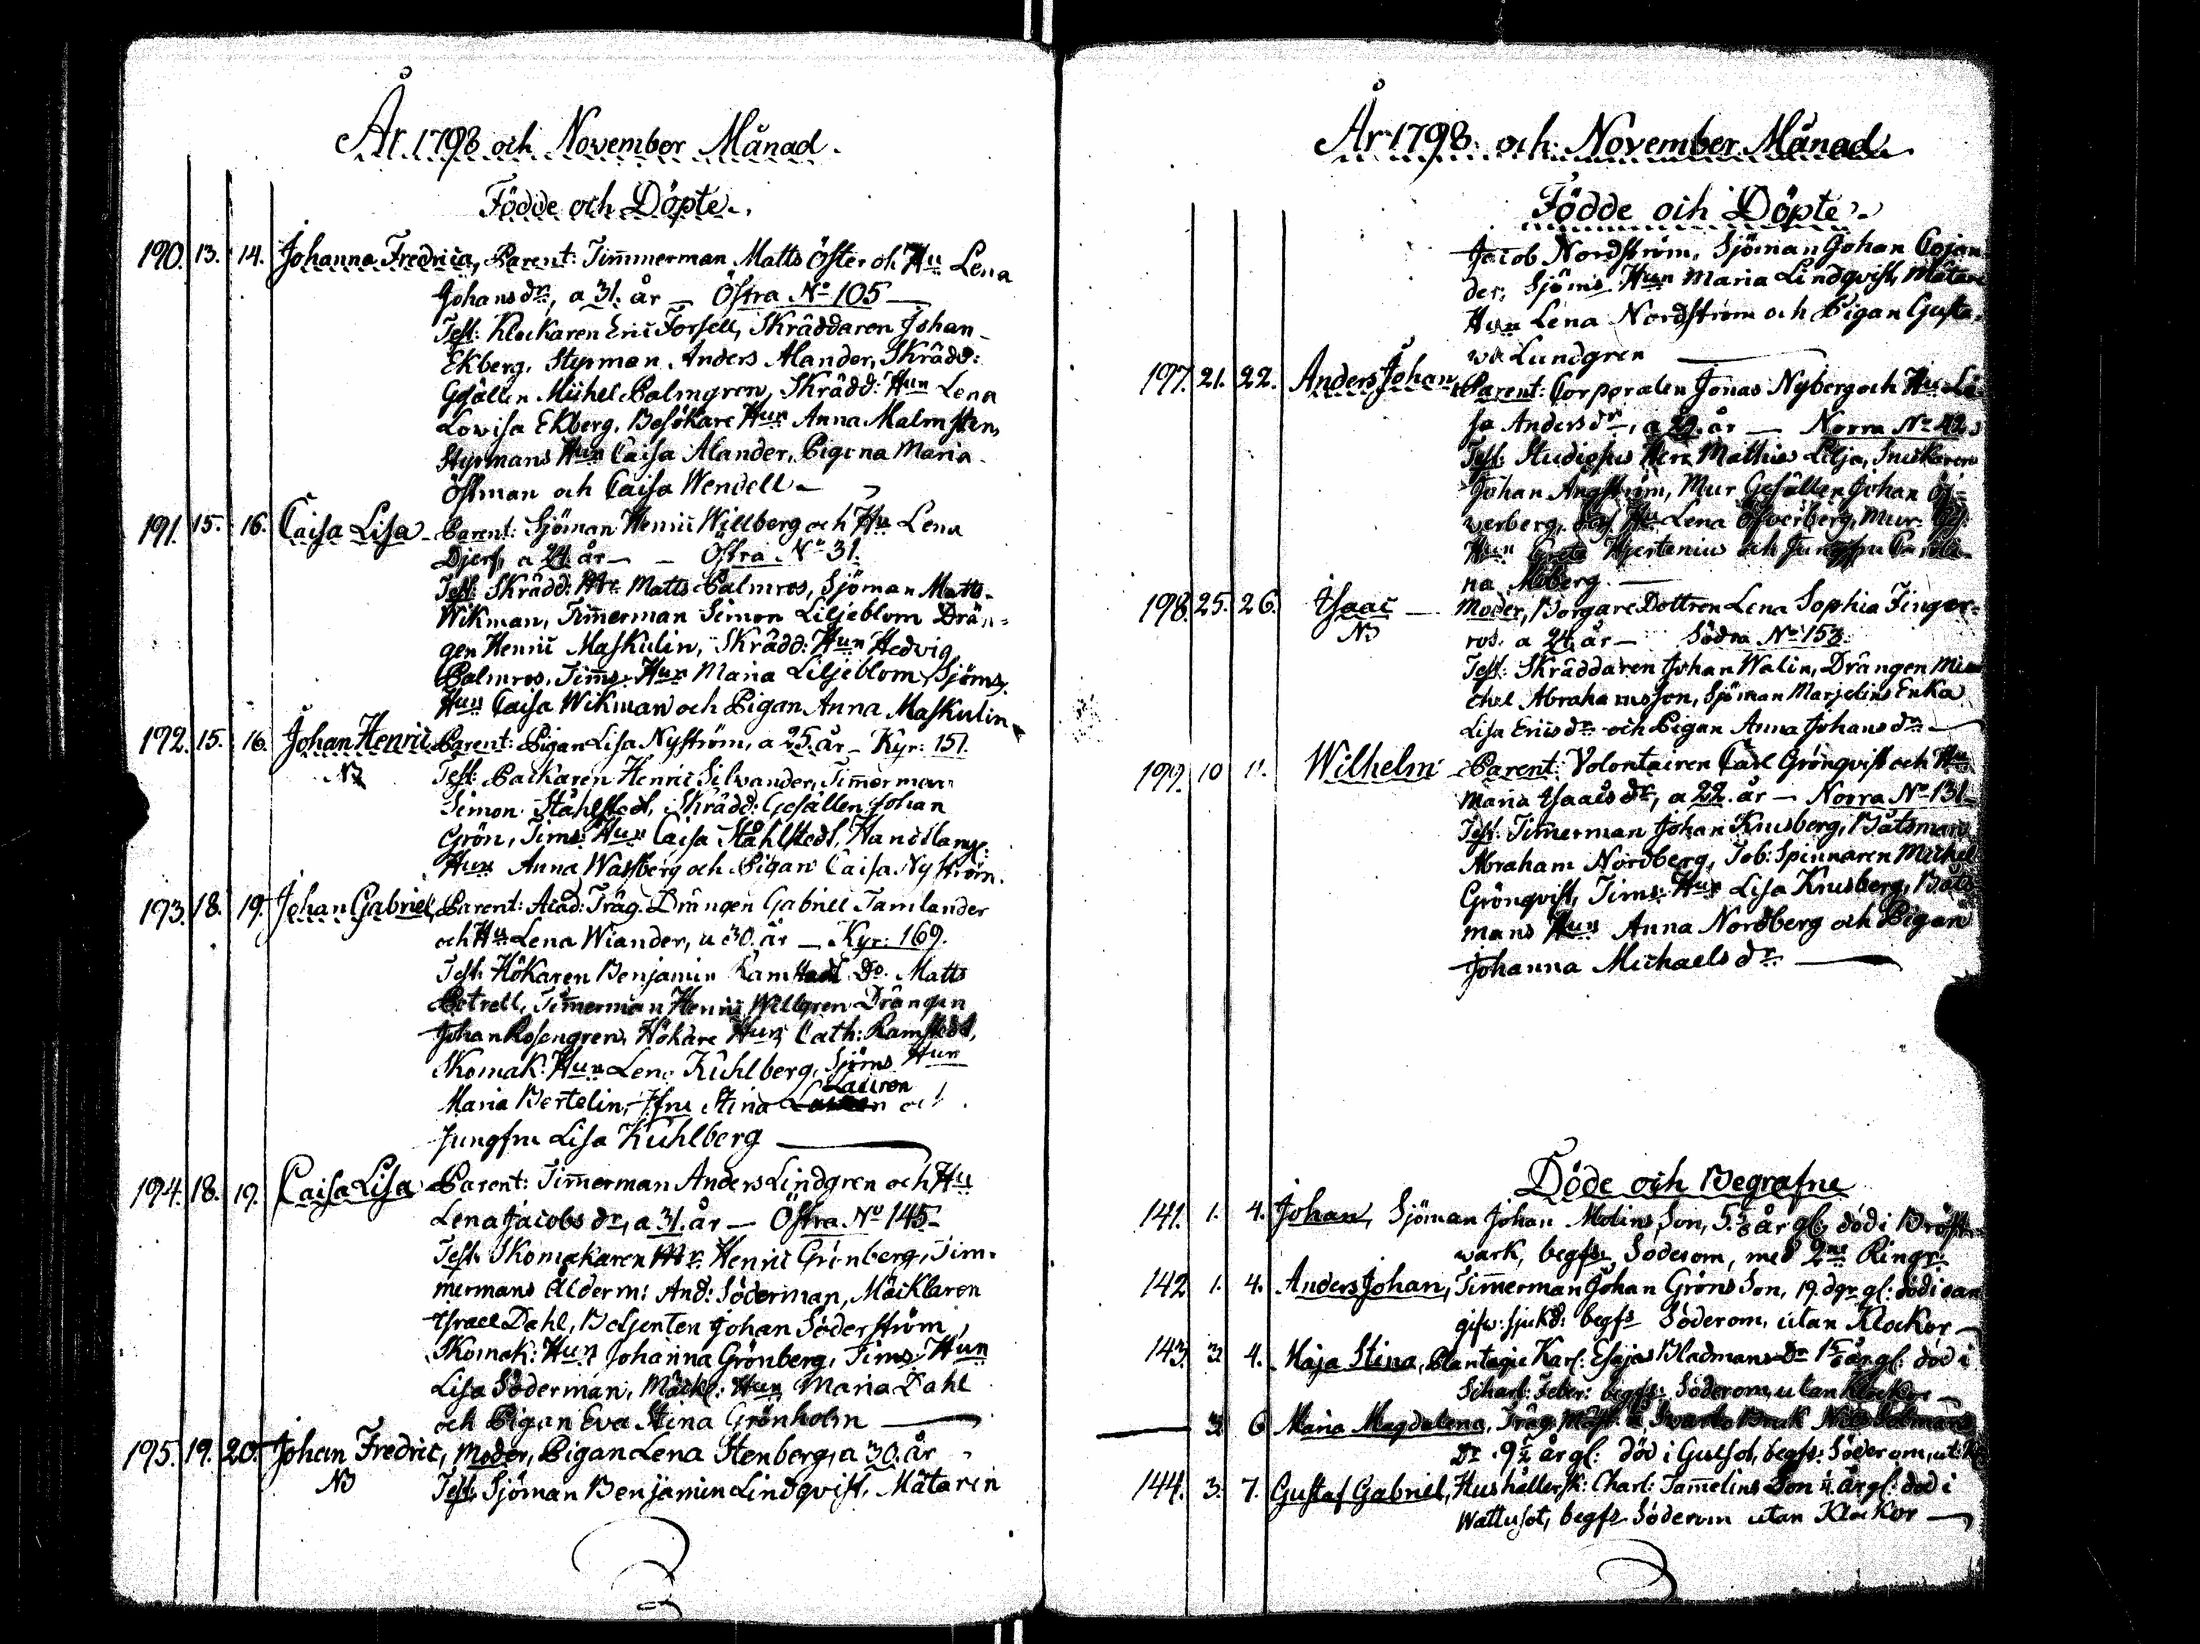 År 1798 och November Månad.
Födde och Döpte.
190. 13. 14. Johanna Fredrica, Parent: Timmerman Matts Öster och Hu Lena
Johansdr, a 31. år — Östra No 105 —
Test: Klockaren Eric Forsell, Skräddaren Johan
Ekberg, Styrman Anders Alander, Skrädd:
Gesällen Michel Palmgren, Skrädd: Hun Lena
Lovisa Ekberg, Besökare Hun Anna Malmsten,
Styrmans Hun Caisa Alander, Pigorna Maria
Östman och Caisa Wendell —
191. 15. 16. Caisa Lisa — Parent: Sjöman Henric Willberg och Hu Lena
Djerf, a 24. år — — Östra No 31.
Test: Skrädd: Mr Matts Palmros, Sjöman Matts
Wikman, Timmerman Simon Liljeblom Drän-
gen Henric Maskulin, Skrädd: Hun Hedvig
Palmros, Tims: Hun Maria Liljeblom, Sjöms
Hun Caisa Wikman och Pigan Anna Maskulin
192. 15. 16. Johan Henric Parent: Pigan Lisa Nyström, a 25. år — Kyr: 151.
NB Test: Packaren Henric Silvander, Timmerman
Simon Ståhlstedt, Skrädd: Gesällen Johan
Grön, Tims: Hun Caisa Ståhlstedt, Handtlang:
Hun Anna Wassberg och Pigan Caisa Nyström.
193. 18. 19. Johan Gabriel, Parent: Acad: Träg. Drängen Gabriel Tamlander
och Hu Lena Wiander, a 30. år — Kyr: 169.
Test: Hökaren Benjamin Ramstedt Do Matts
Petrell, Timmerman Henric Willgren Drängen
Johan Rosengren, Hökare Hun Cath: Ramstedt,
Skomak: Hun Lena Kuhlberg, Sjöms Hun
Lauren
Maria Bertelin, Jfru Stina och
Jungfru Lisa Kuhlberg —
194. 18. 19. Caisa Lisa Parent: Timmerman Anders Lindgren och Hu
Lena Jacobsdr, a 31. år — Östra No 145 —
Test: Skomakaren Mr Henric Grönberg, Tim-
mermans Ålderm: And: Söderman, Mäcklaren
Israel Dahl, Betjenten Johan Söderström,
Skomak: Hun Johanna Grönberg, Tims: Hun
Lisa Söderman, Mäckl: Hun Maria Dahl
och Pigan Eva Stina Grönholm —
195. 19. 20. Johan Fredric, Moder, Pigan Lena Stenberg, a 30. år
NB Test: Sjöman Benjamin Lindqvist, Mätaren
År 1798 och November Månad
Födde och Döpte
Jacob Nordström, Sjöman Johan Cajan
der, Sjöms Hun Maria Lindqvist, Mätare
Hun Lena Nordström och Pigan Gusta-
va Lundgren —
197. 21. 22. Anders Johan Parent: Corporalen Jonas Nyberg och Hu Li-
sa Andersdr, a 29. år — Norra No 42.
Test: Studiosus Herr Mathias Lilja, Snickaren
Johan Angström, Mur Gesällen Johan Öf-
verberg, Hu Lena Öfverberg, Mur: Ges:
Hun Greta Hjertenius och Jungfru Caroli-
na Moberg. —
198. 25. 26. Isaac — Moder, Borgare Dottren Lena Sophia Finger-
NB ros, a 24. år — Södra No 153.
Test: Skräddaren Johan Walin, Drängen Mi-
chel Abrahamsson, Sjöman Marjelins Enka
Lisa Ericsdr och Pigan Anna Johansdr —
199. 10 11. Wilhelm Parent: Volontairen Carl Grönqvist och Hu
Maria Isaacsdr, a 22. år — Norra No 131.
Test: Timmerman Johan Knusberg, Båtsman
Abraham Nordberg, Tob: Spinnaren Michel
Grönqvist, Tims: Hun Lisa Knusberg, Båts-
mans Hun Anna Nordberg och Pigan
Johanna Michaelsdr. —
Döde och Begrafne
141. 1. 4. Johan, Sjöman Johan Molins Son, 5. år gl: död i Bröst-
wärk, begfs: Söderom, med 2ne Ringr:
142 1. 4. Anders Johan, Timmerman Johan Gröns Son, 19. dgr gl: död i oan
gifw: sjukd: begfs Söderom, utan Klockor —
143. 3. 4. Maja Stina, Plantagie Karl: Esajas Bladmans Dr år gl: död i
Scharl: Feber: begfs: Söderom, utan Klockor —
— 3. 6 Maria Magdalena, Träg. Mäst:
Dr 9 1/2 år gl: död i Gulsot, begfs: Söderom, ut: Kl:
144. 3. 7. Gustaf Gabriel, Hushållersk: Charl: Tammelins Son 1/4 år gl: död i
Wattusot, begfs Söderom utan Klockor —